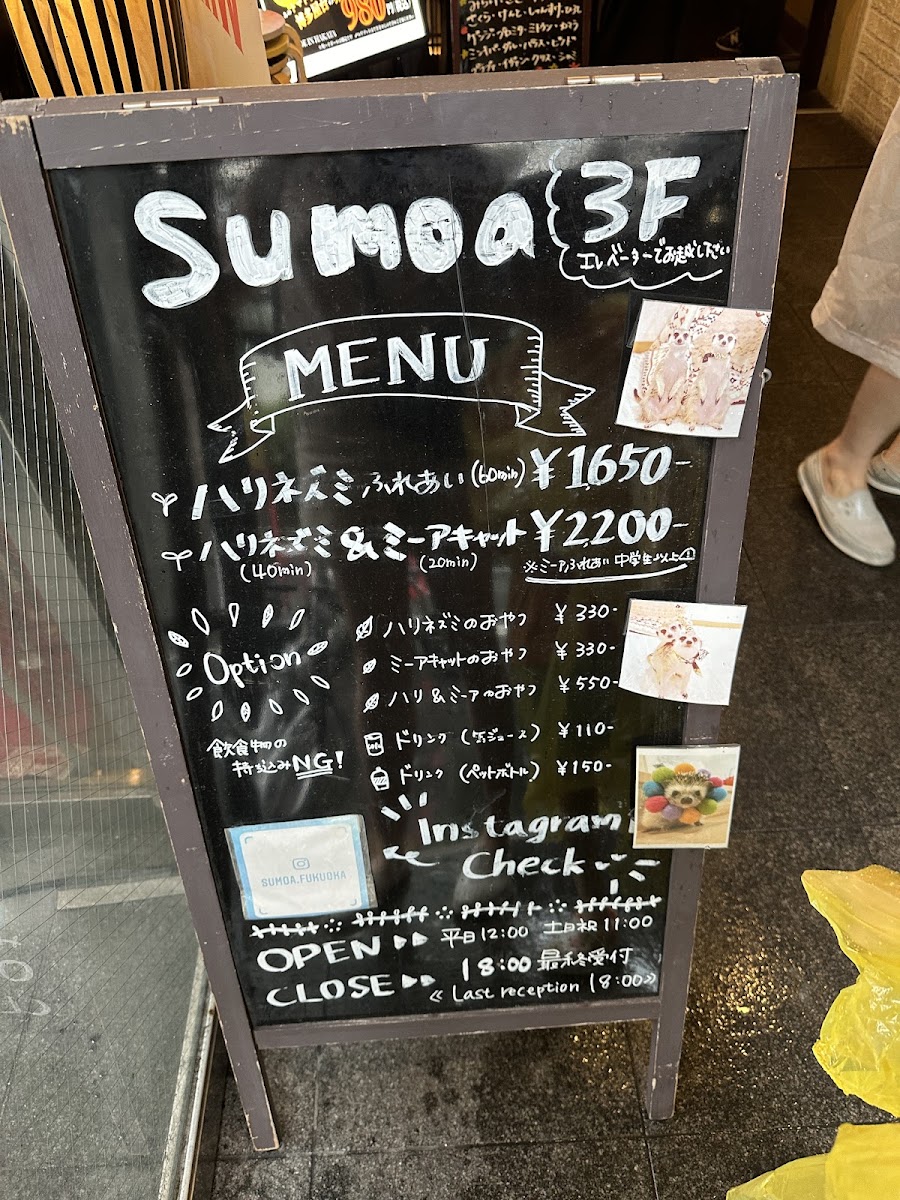 980円(税込)
Sumoa
3F
エレベーターでお越し下さい
MENU
ハリネズミふれあい(60min) ¥1650-
ハリネズミ&ミーアキャット ¥2200-
(40min) (20min) ※ミーアふれあい中学生以上!
Option
ハリネズミのおやつ ¥330-
ミーアキャットのおやつ ¥330-
ハリ&ミーアのおやつ ¥550-
ドリンク(缶ジュース) ¥110-
ドリンク(ペットボトル) ¥150-
飲食物の
持ち込みNG!
Instagram
Check
SUMOA.FUKUOKA
OPEN 平日12:00 土日祝11:00
CLOSE 18:00最終受付
《Last reception 18:00》